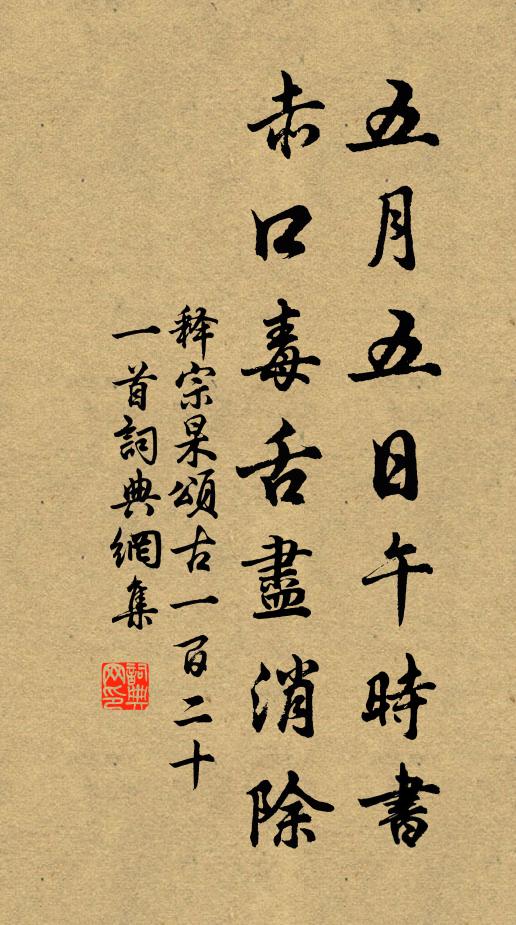 五月五日午時書
赤口毒舌盡消除
释宗杲頌古一百二十
一首詞典網集
詞典網印